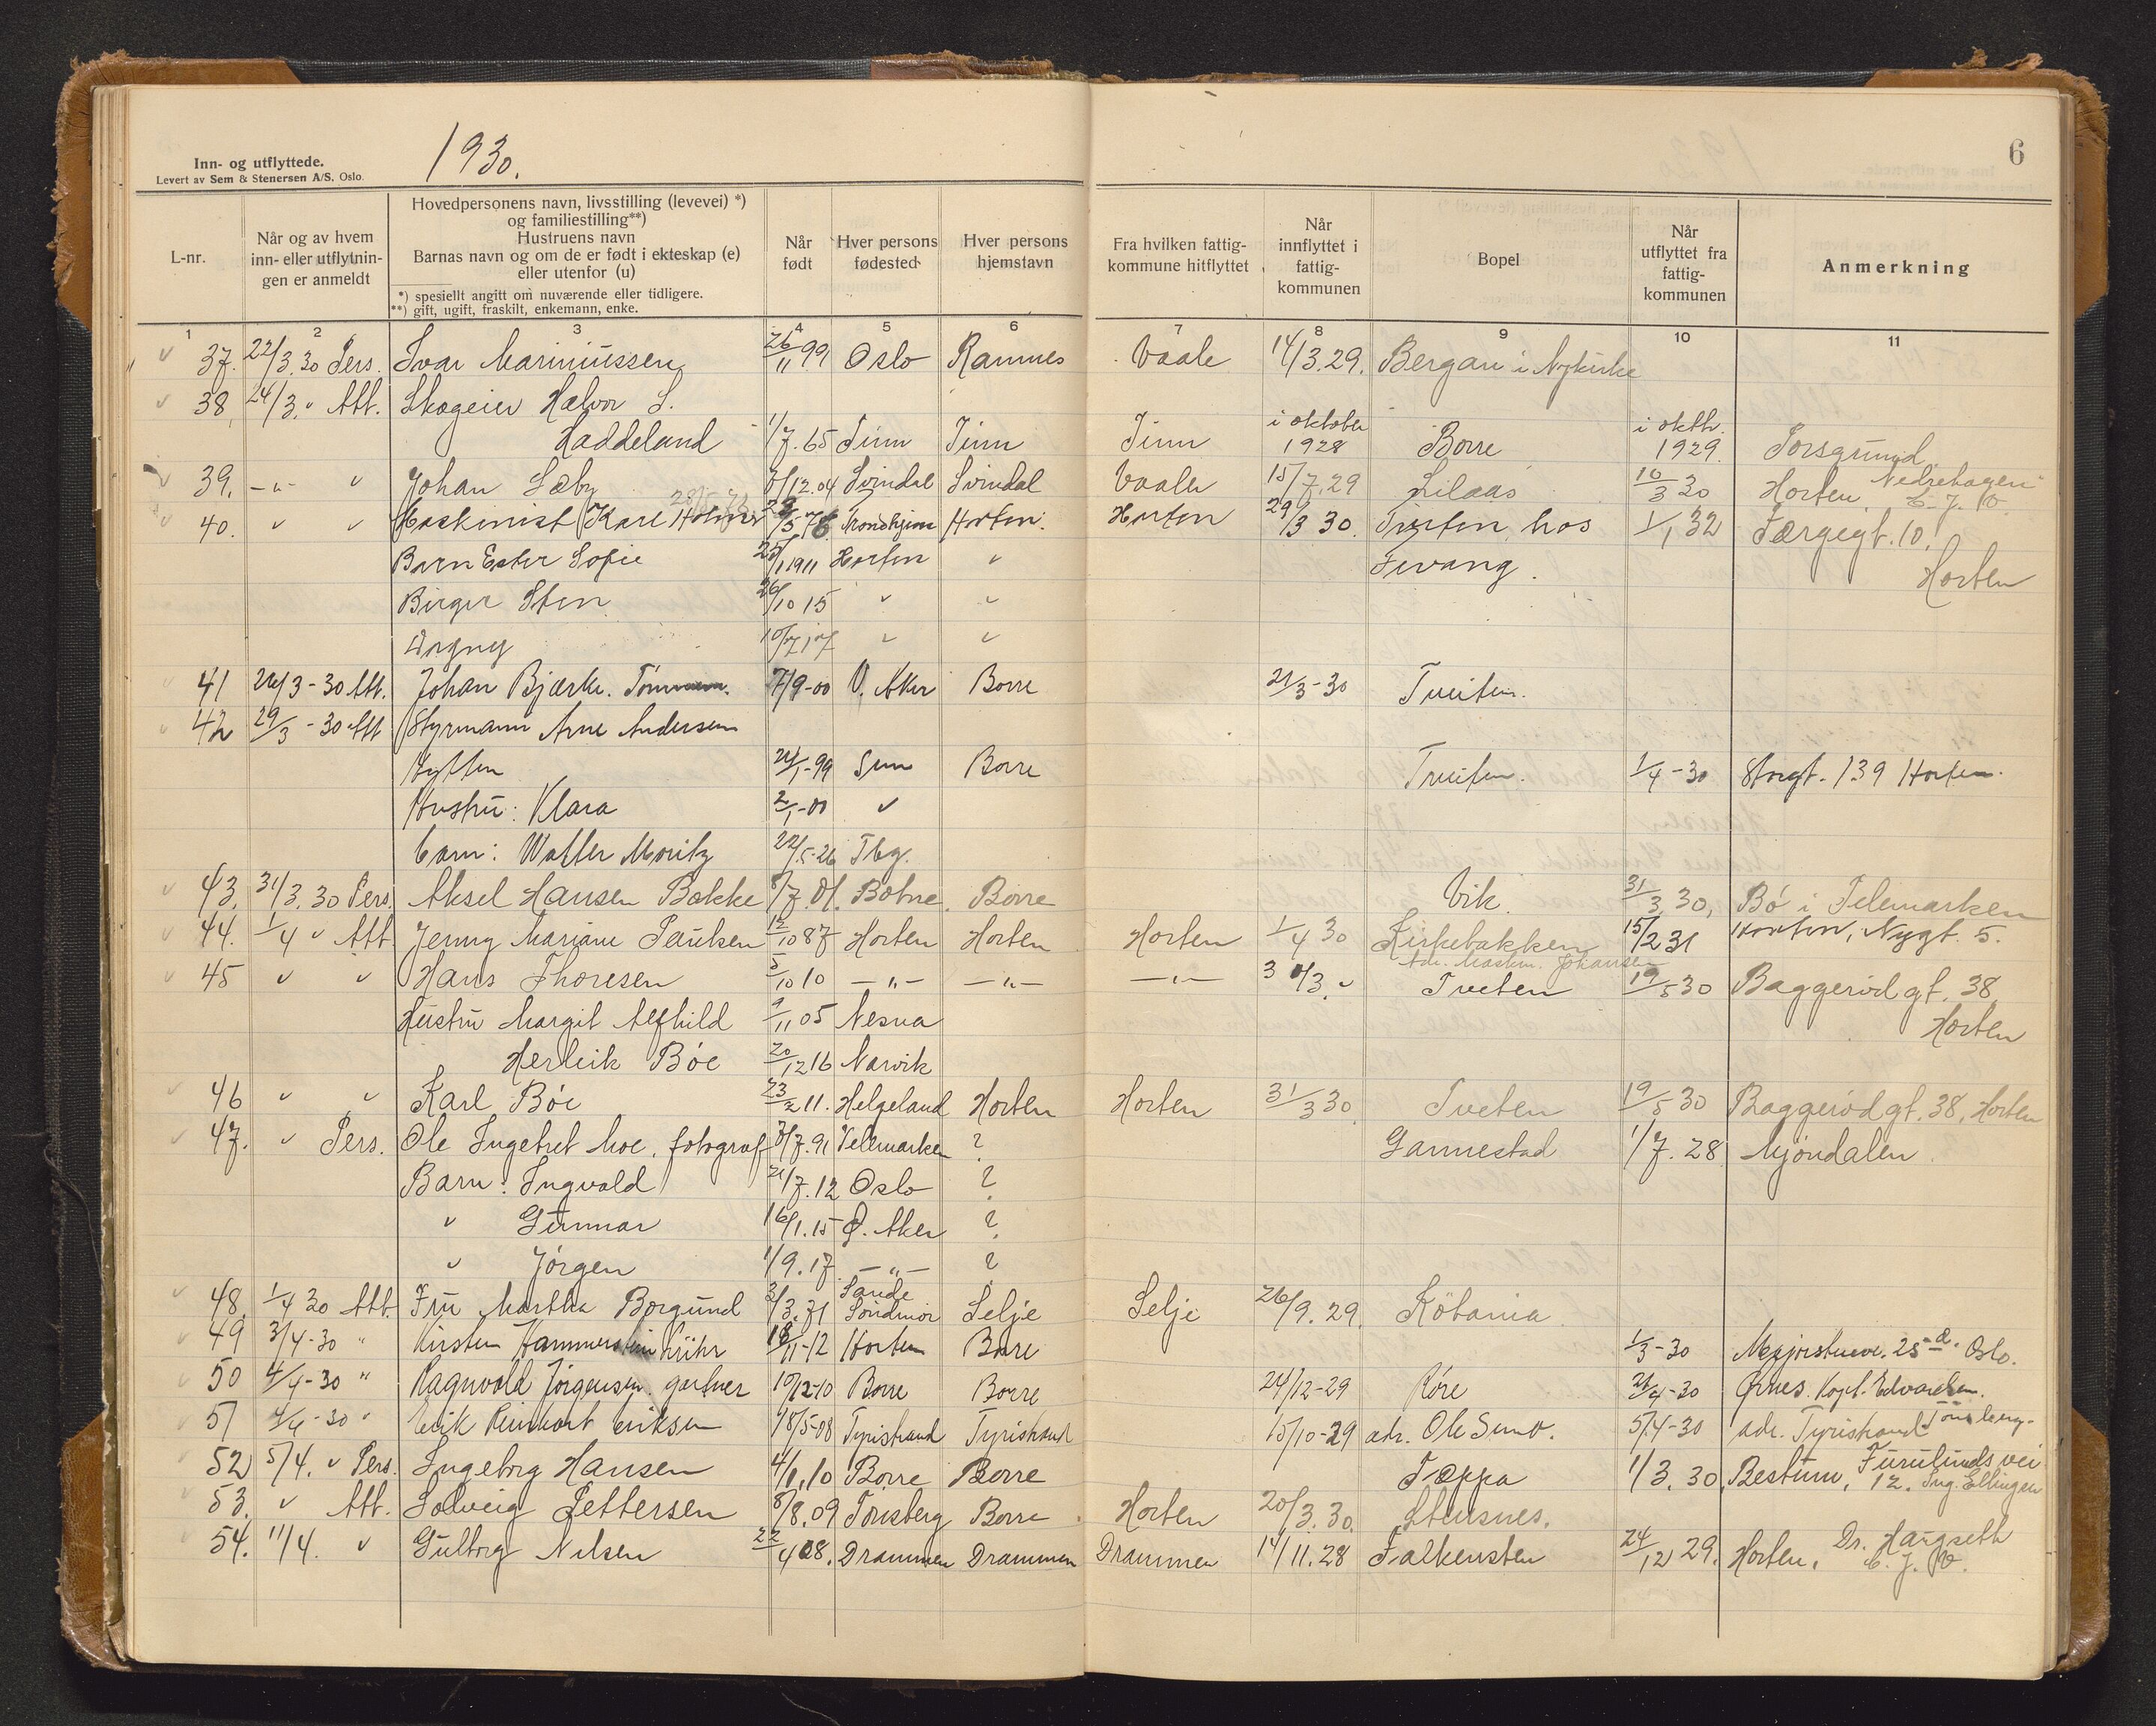 Inn- og utflyttede.
Levert av Sem & Stenersen A/S. Oslo.
1930.
6
L-nr.
Når og av hvem inn- eller utflytnin-gen er anmeldt
Hovedpersonens navn, livsstilling (levevei) *)
og familiestilling**)
Hustruens navn
Barnas navn og om de er født i ekteskap (e)
eller utenfor (u)
*) spesiellt angitt om nuværende eller tidligere.
**) gift, ugift, fraskilt, enkemann, enke.
Når født
Hver persons fødested
Hver persons hjemstavn
Fra hvilken fattig-kommune hitflyttet
Når innflyttet i fattig-kommunen
Bopel
Når utflyttet fra fattig-kommunen
Anmerkning
1 2 3 4 5 6 7 8 9 10 11
37. 22/3.30 Pers. Ivar Mariniussen 26/11 99 Oslo Ramnes Vaale 14/3.29. Bergan i Nykirke
38, 24/3. " Att. Skogeier Halvor S.
Haddeland 1/7.65 Tinn Tinn Tinn i oktober 1928 Borre i oktbr. 1929. Porsgrund
39. -"- " Johan Sæby /12.04 Svindal Svindal Vaaler 15/7.29 Lilaas 10/3 30 Horten, Nedrehagen
40. " " Maskinist Karl Holmer /5 78 Trondhjem Horten. Horten 29/3 30. Tveten, hos 1/1 32 Færgegt. 10.
Barn Ester Sofie 25/1 1911 Horten " Tevang. Horten
Birger Sten 26/10 15 " "
Dagny 10/7 17 " "
41 26/3-30 Att. Johan Bjærke. 7/9-00 V. Aker Borre 21/3-30 Tveiten.
42 29/3-30 Att Styrmann Arne Andersen
Hytten 24/1-99 Sem Borre Tveiten. 1/4-30 Storgt. 139 Horten.
Hustru: Klara 2/1-00 "
barn: Walter Moritz 22/5-26 Tbg.
43. 31/3.30 Pers. Aksel Hansen Bakke 8/7.01. Botne. Borre Vik. 31/3.30, Bø i Telemarken
44. 1/4 " Att. Jenny Mariane Paulsen 12/10 87 Horten Horten Horten 1/4 30 Kirkebakken 15/2 31 Horten, Nygt. 5.
Adr. Maskm. Johansen
45 " " Hans Thoresen 5/10 10 -"- -"- -"- 31/3. " Tveten 19/5 30 Baggerødgt. 38
Hustru Margit Alfhild 9/11 05 Nesna Horten
Herleik Böe 20/12 16 Narvik
46 " " Karl Böe 23/2 11. Helgeland Horten Horten 31/3 30. Tveten 19/5 30 Baggerødgt. 38, Horten
47. " Pers. Ole Ingebret Moe, fotograf /7.91 Vellmarken ? Gannestad 1/7.28 Mjøndalen.
Barn: Ingvald 21/7.12 Oslo ?
" Gunnar 16/1.15 Ø. Aker ?
" Jörgen 1/9.17 -"- ?
48, 1/4 30 Att. Fru Martha Borgund 3/3.71 Sande Söndmör Selje Selje 26/9.29. Köbania
49 3/4-30 " Kirsten Hammerstein Kiihr 18/11-12 Horten Borre 1/3-30 Majorstuevn. 25 d. Oslo.
50 4/4-30 " Ragnvald Jörgensen. gartner 10/12-10 Borre Borre 24/12-29 Röre 24-30 Ørnes. Kapt. Edvardsen.
Tönsberg
51 4/4-30 " Erik Reinhart Eriksen 18/5-08 Tyristrand Tyristrand 15/10-29 adr. Ole Sund. 5/4-30 adr. Tyristrand
52 5/4. " Pers. Ingeborg Hansen 4/1.10 Borre Borre Toppa 1/3.30 Bestum, Furulunds vei 12. Ing. Ellingsen
53. " Att. Solveig Pettersen 8/8.09 Tønsberg Borre Horten 20/3.30.
54. 11/4. " Gulborg Nilsen 22/4 08. Drammen Drammen Drammen 14/11.28 Falkensten 24/12 29. Horten, Dr. Haugseth